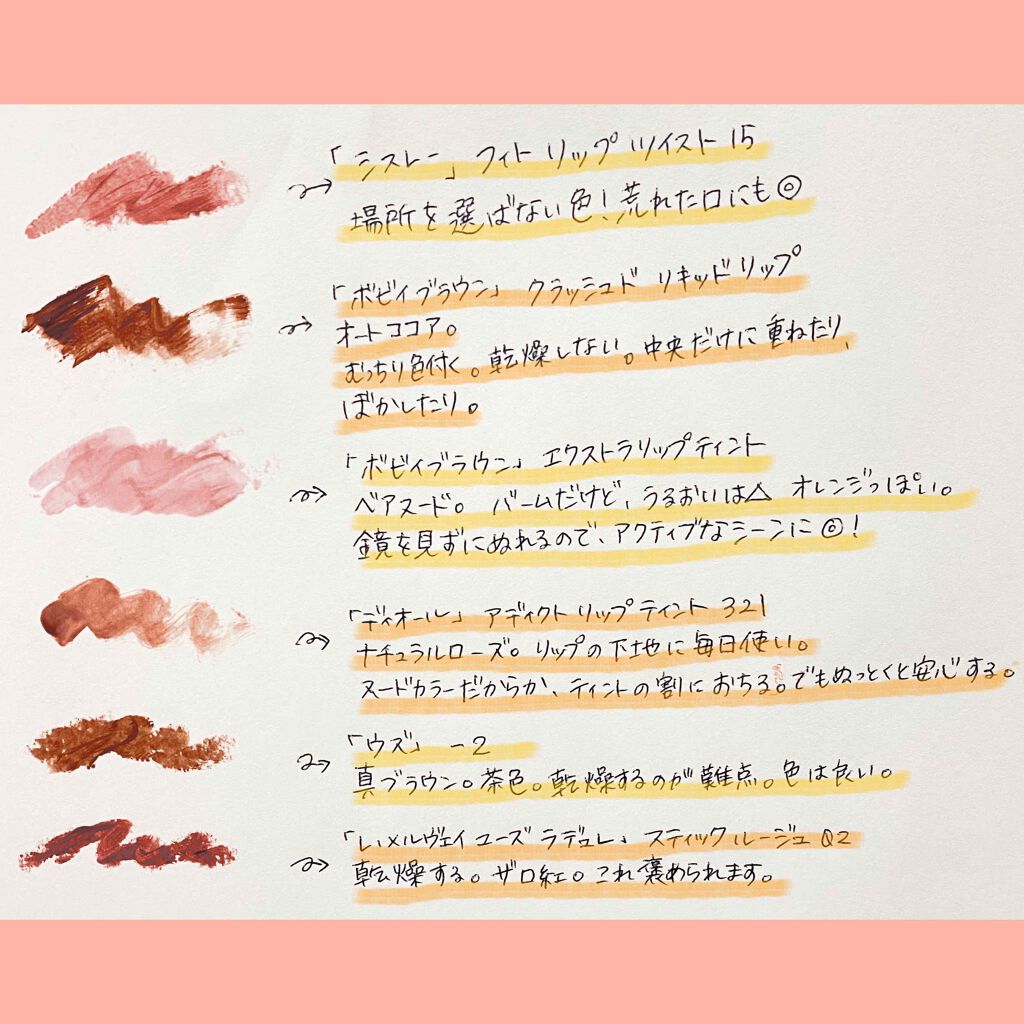 「シスレー」フィト リップ ツイスト 15
場所を選ばない色!荒れた口にも◎
「ボビイブラウン」 クラッシュド リキッド リップ
オートココア。
むっちり色付く。乾燥しない。中央だけに重ねたり、
ぼかしたり。
「ボビイブラウン」 エクストラリップティント
ベアヌード。 バームだけど、うるおいは△ オレンジっぽい。
鏡を見ずにぬれるので、アクティブなシーンに◎!
「ディオール」 アディクト リップ ティント 321
ナチュラルローズ。リップの下地に毎日使い。
ヌードカラーだからか、ティントの割におちる。でもぬっとくと安心する。
「ウズ」 -2
真ブラウン。茶色。乾燥するのが難点。色は良い。
「レ・メルヴェイユーズ ラデュレ」 スティックルージュ 02
乾燥する。ザロ紅。これ褒められます。